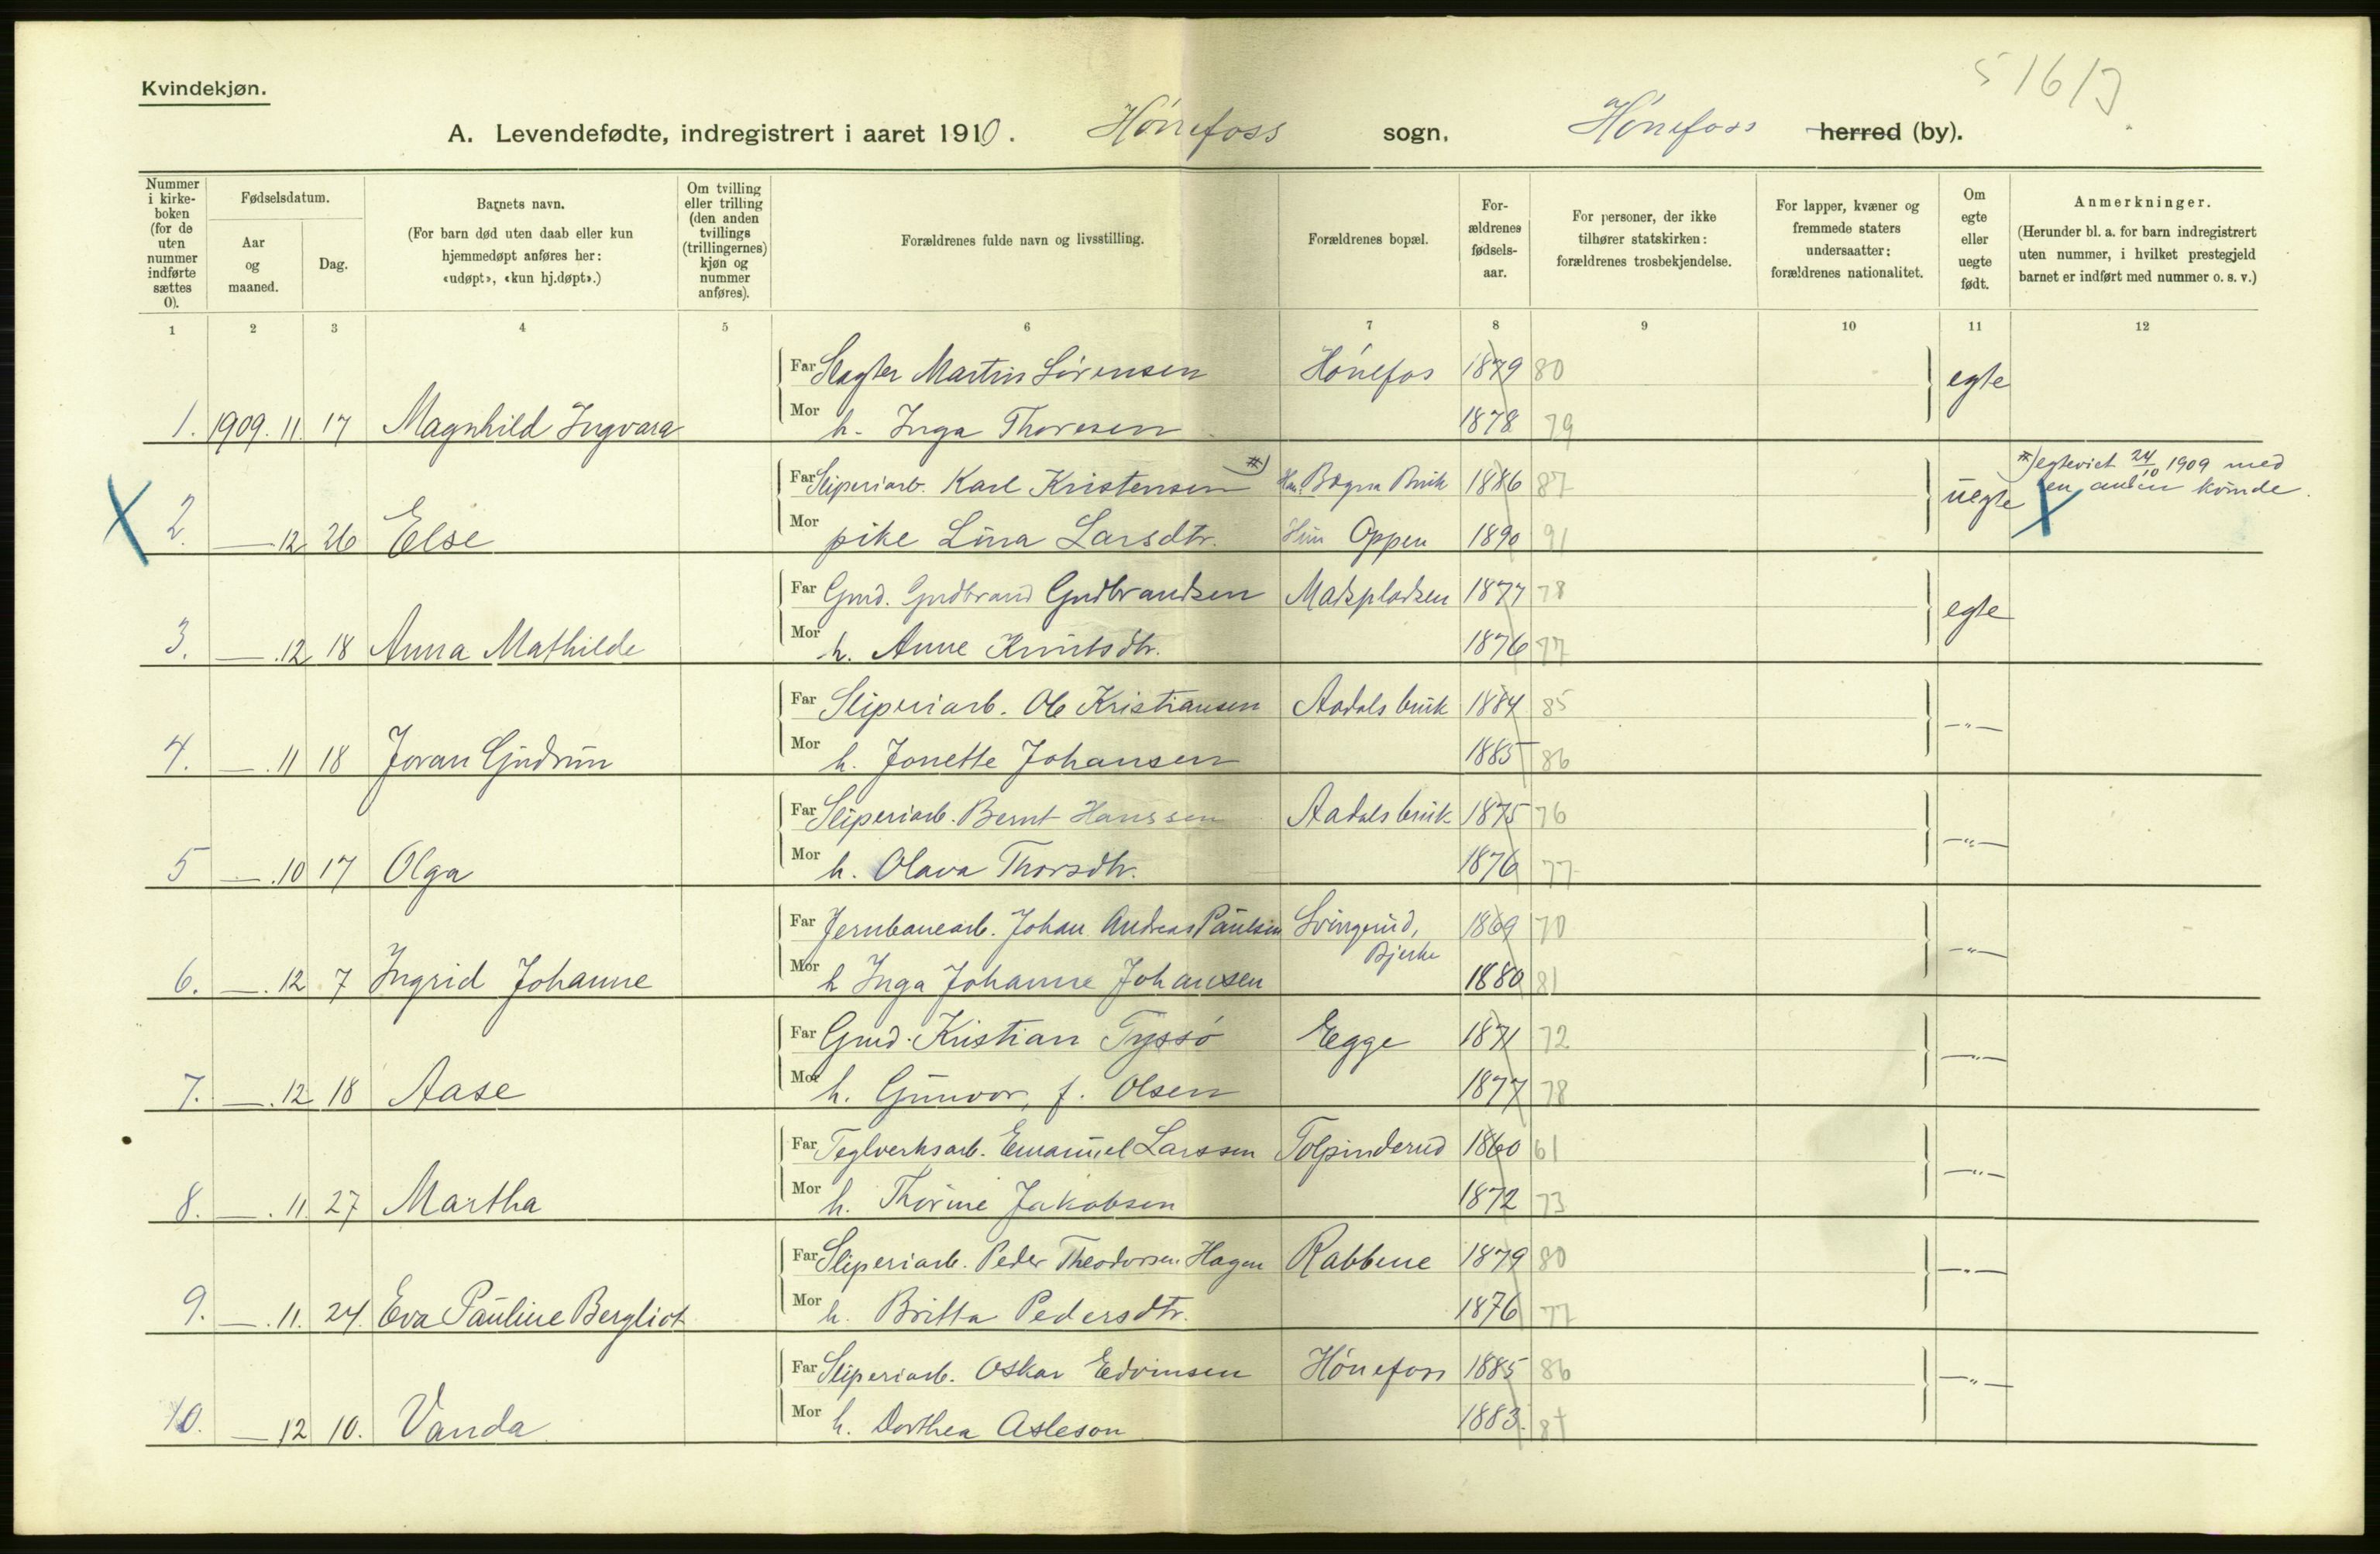 5/6/9
Kvindekjøn.
A. Levendefødte, indregistrert i aaret 1910. Hönefoss sogn, Hönefoss herred (by).
Nummer i kirkeboken (for de uten nummer indførte sættes 0).
Fødselsdatum.
Aar og maaned.
Dag.
Barnets navn.
(For barn død uten daab eller kun hjemmedøpt anføres her: «udøpt», «kun hj.døpt».)
Om tvilling eller trilling (den anden tvillings (trillingernes) kjøn og nummer anføres).
Forældrenes fulde navn og livsstilling.
Forældrenes bopæl.
Forældrenes fødselsaar.
For personer, der ikke tilhører statskirken: forældrenes trosbekjendelse.
For lapper, kvæner og fremmede staters undersaatter: forældrenes nationalitet.
Om egte eller uegte født.
Anmerkninger.
(Herunder bl. a. for barn indregistrert uten nummer, i hvilket prestegjeld barnet er indført med nummer o. s. v.)
1 2 3 4 5 6 7 8 9 10 11 12
Far Slagter Martin Sörensen Hönefos 1879 80 egte
1. 1909. 11. 17 Magnhild Ingvara Mor h. Inga Thoresen 1878 79
Far Sliperiarb. Karl Kristensen #) Han: Bægna Bruk 1886 87 uegte #) egteviet 24/10 1909 med en anden kvinde.
2. — 12 26 Else Mor pike Lina Larsdtr. Hun Oppen 1890 91
Far Gmd. Gudbrand Gudbrandsen Madspladsen 1877 78 egte
3. —. 12 18 Anna Mathilde Mor h. Anne Knutsdtr. 1876 77
Far Sliperiarb. Ole Kristiansen Aadals bruk 1884 85 —"—
4. —. 11 18 Joran Gudrun Mor h. Jonette Johansen 1885 86
Far Sliperiarb. Bernt Hanssen Aadals bruk 1875 76 —"—
5 —. 10 17 Olga Mor h. Olava Thorsdtr. 1876 77
Far Jernbanearb. Johan Andreas Paulsen Svingerud, Bjerke 1869 70 —"—
6. —. 12 7 Ingrid Johanne Mor h Inga Johanne Johansen 1880 81
Far Gmd. Kristian Tyssö Egge 1871 72 —"—
7. —. 12 18 Aase Mor h. Gunvor, f. Olsen 1877 78
Far Teglverksarb. Emanuel Larssen Tolpinderud 1860 61 —"—
8. —. 11. 27 Martha Mor h. Thorine Jakobsen 1872 73
Far Sliperiarb. Peder Theodorsen Hagen Rabbene 1879 80 —"—
9. —. 11. 24. Eva Pauline Bergliot Mor h. Britta Pedersdtr. 1876 77
Far Sliperiarb. Oskar Edvinsen Hönefoss 1885 86 —"—
10. — 12 10. Vanda Mor h. Dorthea Asleson 1883. 84